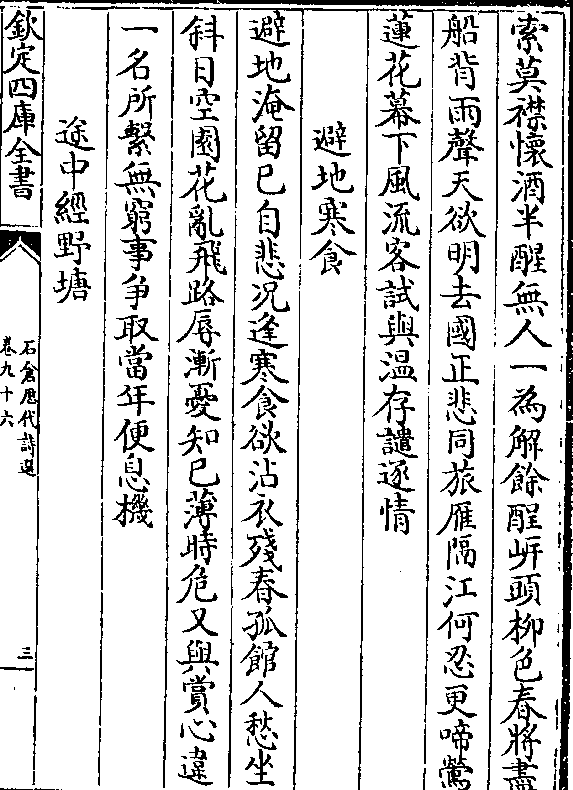 索莫襟懷酒半醒無人一為解餘酲岍頭柳色春將盡
船背雨聲天欲明去國正悲同旅雁隔江何忍更啼鶯
蓮花幕下風流客試與温存譴逐情
避地寒食
避地淹留已自悲况逢寒食欲沾衣殘春孤館人愁坐
斜日空園花亂飛路辱漸憂知已薄時危又與賞心違
一名所繫無窮事爭取當年便息機
途中經野塘
欽定四庫全書
石倉歴代詩選
卷九十六
三